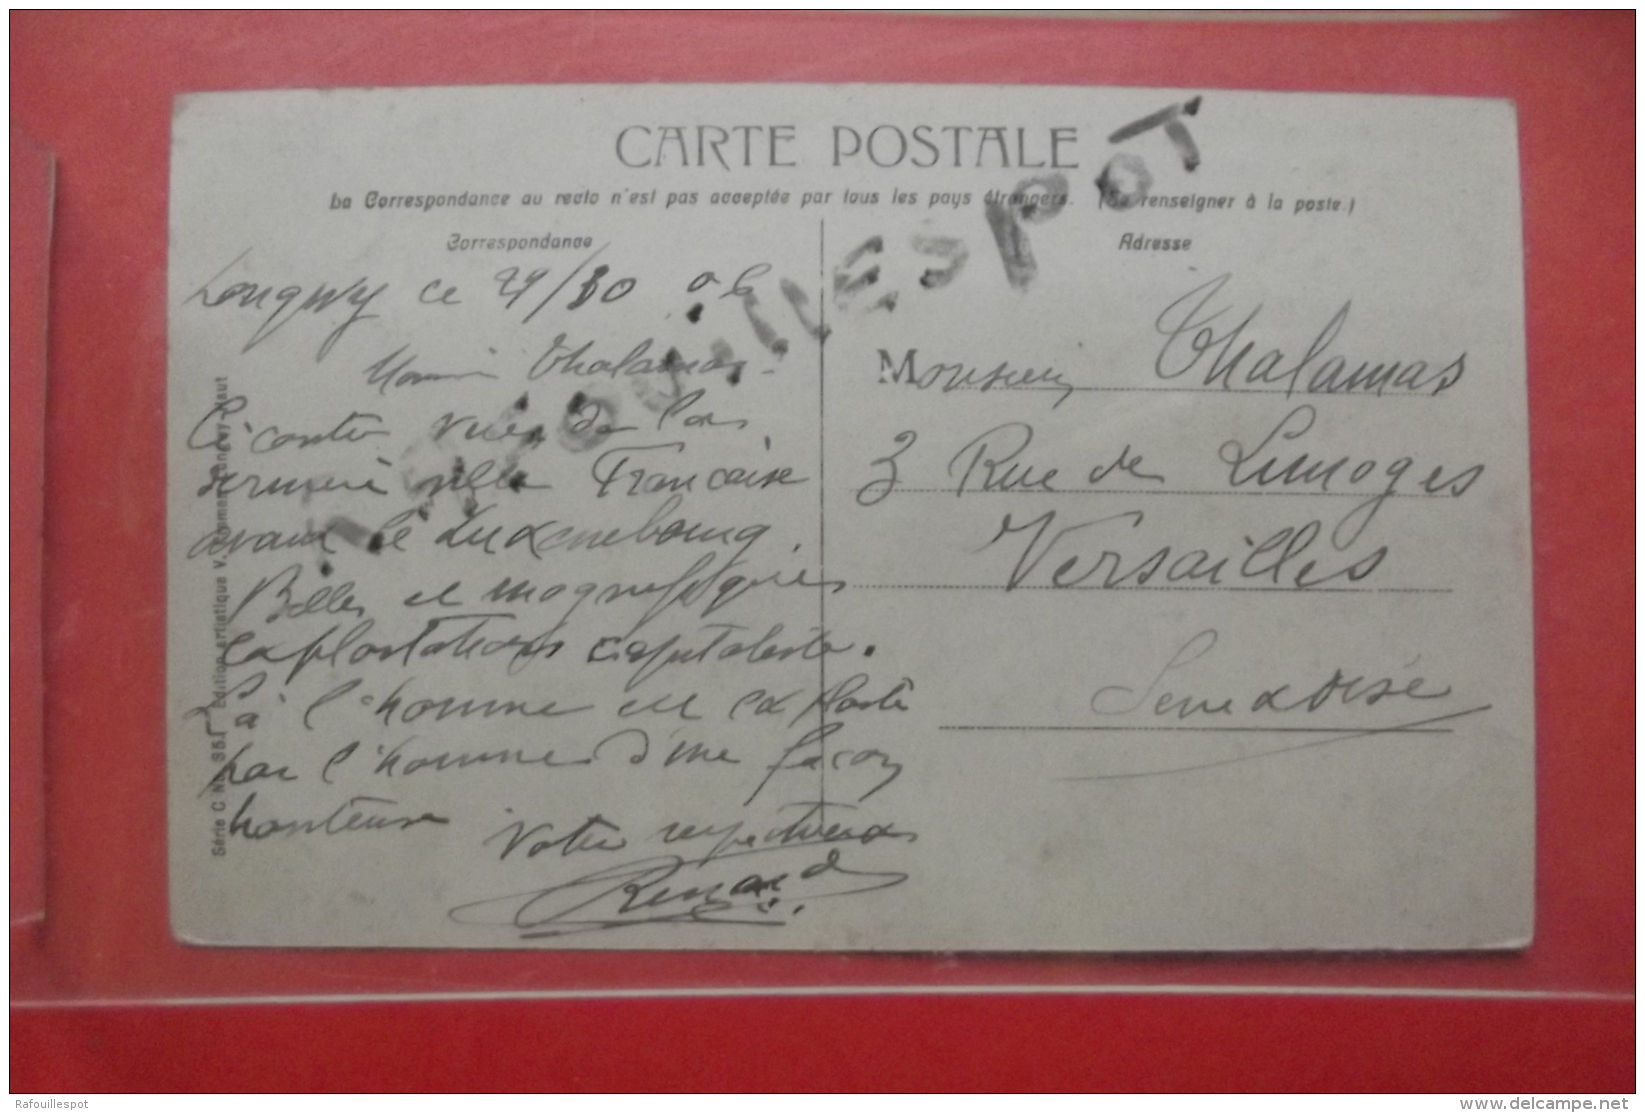 CARTE POSTALE
La Correspondance au recto n'est pas acceptée par tous les pays étrangers. (Se renseigner à la poste.)
Correspondance
Adresse
Longwy ce 29/ 06
Thalamas
Ci contre vues de la
dernière ville Française
avant le Luxembourg.
Belles et magnifiques
exploitations capitaliste.
là l'homme est exploité
par l'homme d'une façon
honteuse
Votre respectueux
Renard
Monsieur Thalamas
3 Rue de Limoges
Versailles
Seine & Oise
Série C No Edition artistique V. Longwy-Haut
RAFOUILLESPOT
Rafouillespot
delcampe.net